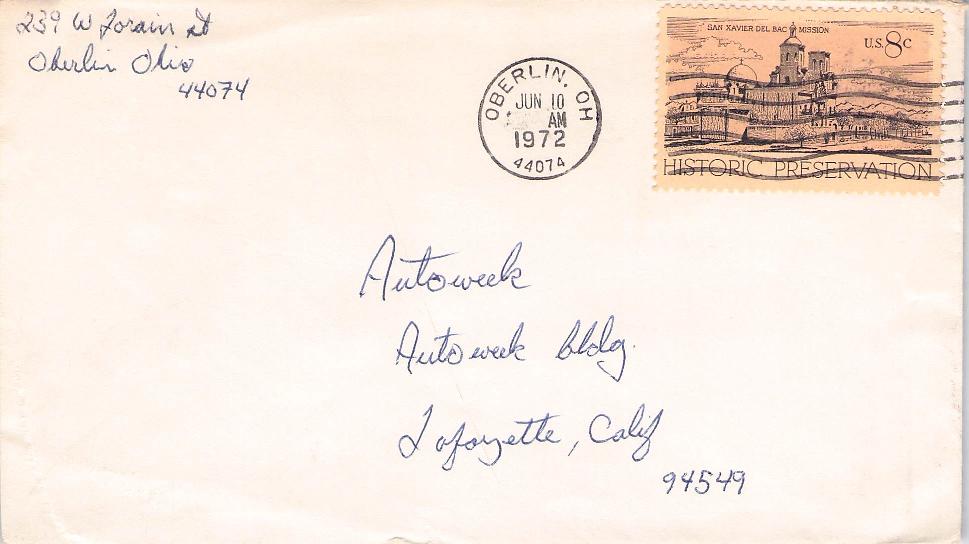 239 W Lorain St
Oberlin Ohio
44074
OBERLIN, OH
JUN 10
AM
1972
44074
SAN XAVIER DEL BAC MISSION
U.S. 8c
HISTORIC PRESERVATION
Autoweek
Autoweek bldg.
Lafayette, Calif
94549